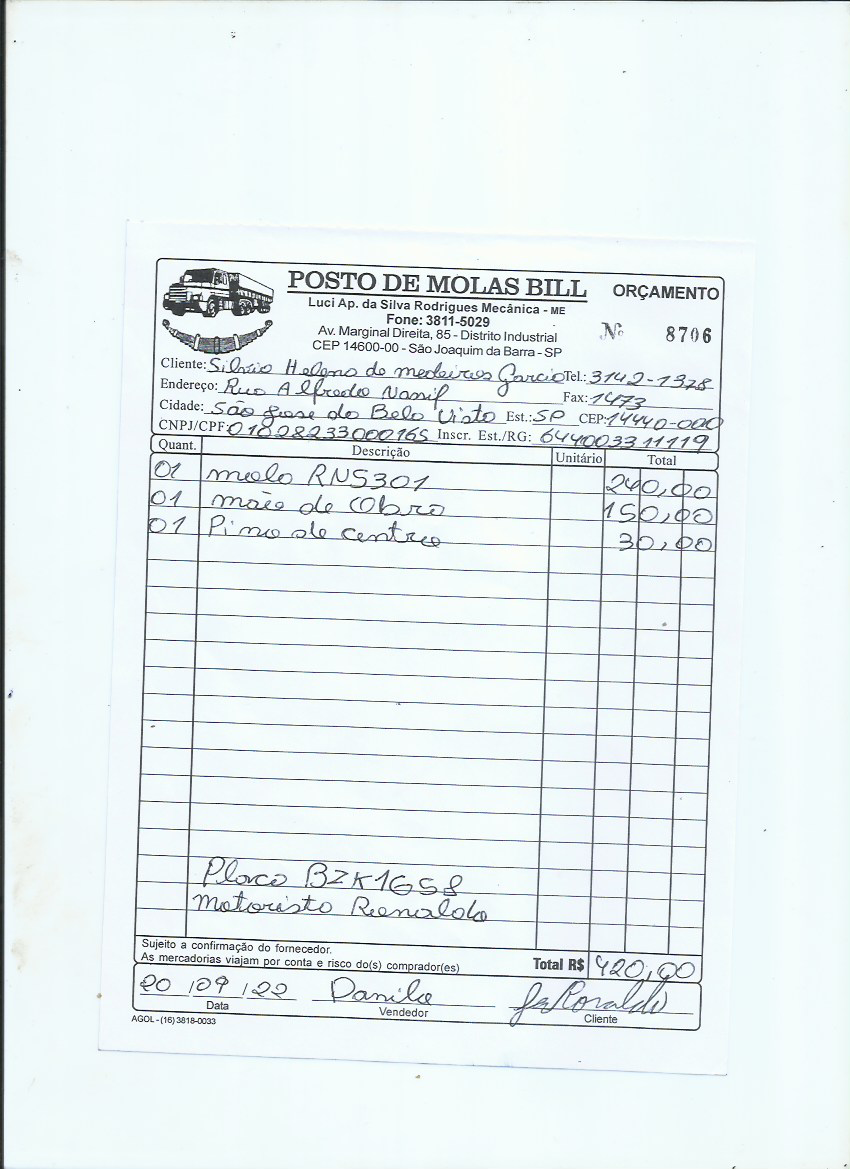 POSTO DE MOLAS BILL
ORÇAMENTO
Luci Ap. da Silva Rodrigues Mecânica - ME
Fone: 3811-5029
Nº 8706
Av. Marginal Direita, 85 - Distrito Industrial
CEP 14600-00 - São Joaquim da Barra - SP
Cliente: Silvio Heleno de medeiros Garcia Tel.: 3142-1328
Endereço: Rua Alfredo Fax: 1473
Cidade: São Jose do Bela Vista Est.: SP CEP: 14440-000
CNPJ/CPF: 01828233000165 Inscr. Est./RG: 644003311119
Quant. Descrição Unitário Total
01 mola RNS301 240,00
01 mão de Obra 150,00
01 Pino de centro 30,00
Placa BZK1658
Motorista Renaldo
Sujeito a confirmação do fornecedor.
As mercadorias viajam por conta e risco do(s) comprador(es)
Total R$ 420,00
20 / 09 / 22 Danilo
Data Vendedor Cliente
AGOL - (16) 3818-0033